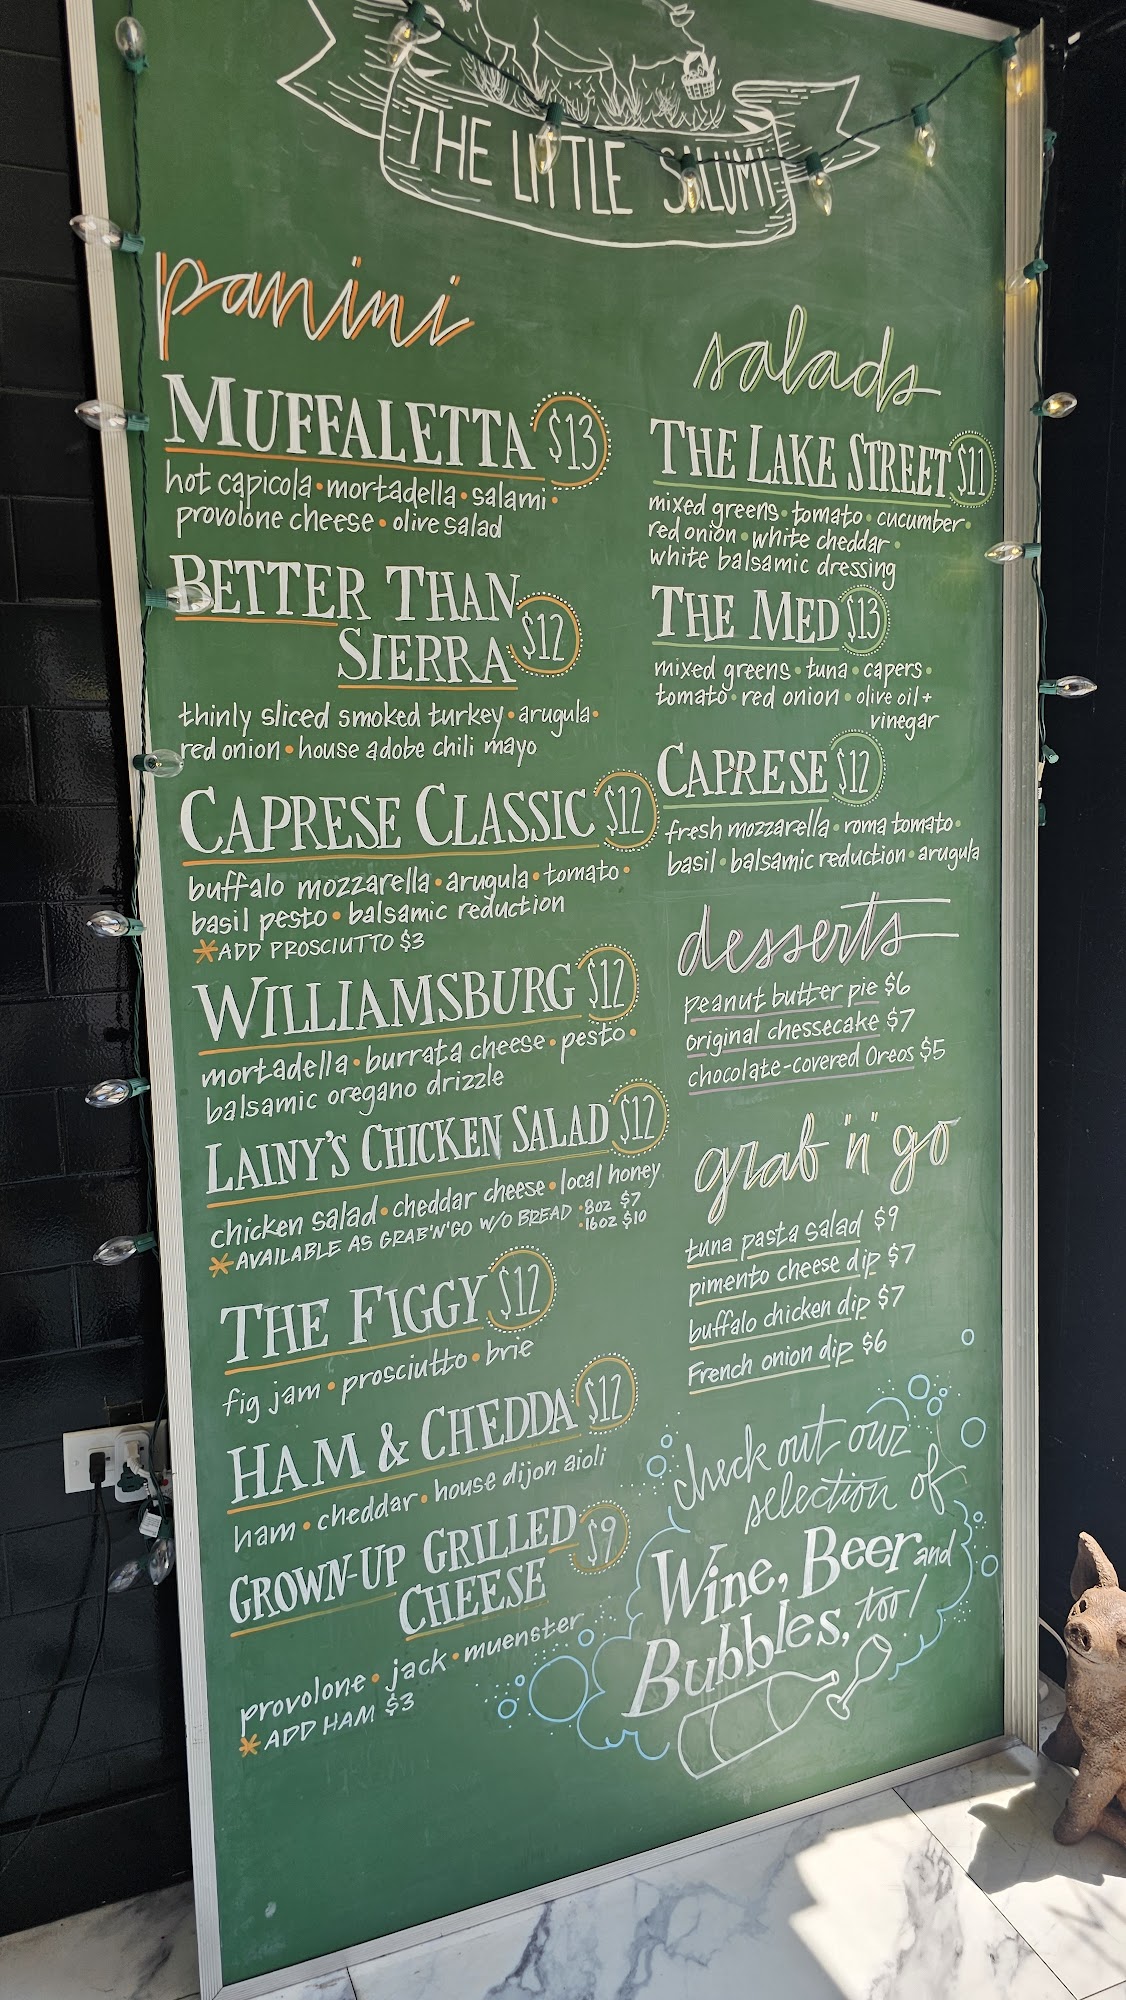 THE LITTLE SALUMI
panini
MUFFALETTA $13
hot capicola • mortadella • salami •
provolone cheese • olive salad
BETTER THAN
SIERRA $12
thinly sliced smoked turkey • arugula •
red onion • house adobe chili mayo
CAPRESE CLASSIC $12
buffalo mozzarella • arugula • tomato •
basil pesto • balsamic reduction
*ADD PROSCIUTTO $3
WILLIAMSBURG $12
mortadella • burrata cheese • pesto •
balsamic oregano drizzle
LAINY'S CHICKEN SALAD $12
chicken salad • cheddar cheese • local honey
*AVAILABLE AS GRAB'N'GO W/O BREAD • 8oz $7
• 16oz $10
THE FIGGY $12
fig jam • prosciutto • brie
HAM & CHEDDA $12
ham • cheddar • house dijon aioli
GROWN-UP GRILLED
CHEESE $9
provolone • jack • muenster
*ADD HAM $3
salads
THE LAKE STREET $11
mixed greens • tomato • cucumber •
red onion • white cheddar •
white balsamic dressing
THE MED $13
mixed greens • tuna • capers •
tomato • red onion • olive oil +
vinegar
CAPRESE $12
fresh mozzarella • roma tomato •
basil • balsamic reduction • arugula
desserts
peanut butter pie $6
original chessecake $7
chocolate-covered Oreos $5
grab "n" go
tuna pasta salad $9
pimento cheese dip $7
buffalo chicken dip $7
French onion dip $6
check out our
selection of
Wine, Beer and
Bubbles, too!